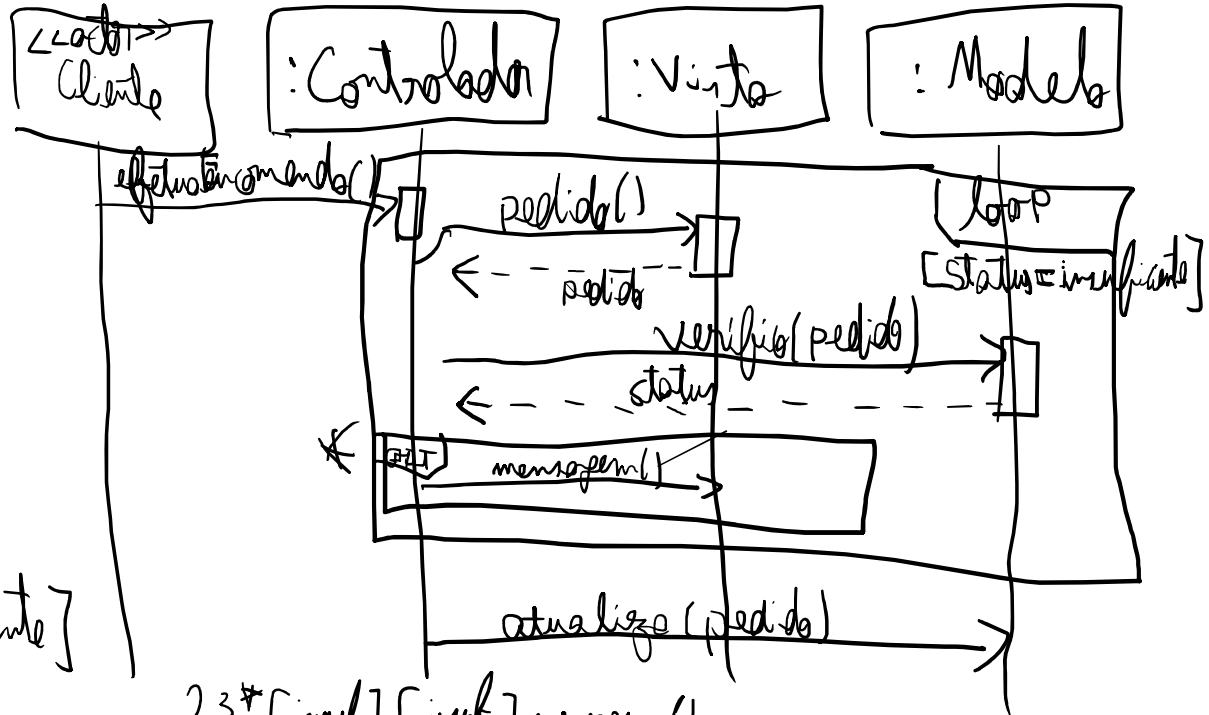 <<actor>>
Cliente
:Controlador
:Vista
:Modelo
efetuaEncomenda()
pedido()
loop
pedido
[status=insuficiente]
verifica(pedido)
status
ALT
mensagem()
atualiza(pedido)
2.3*[